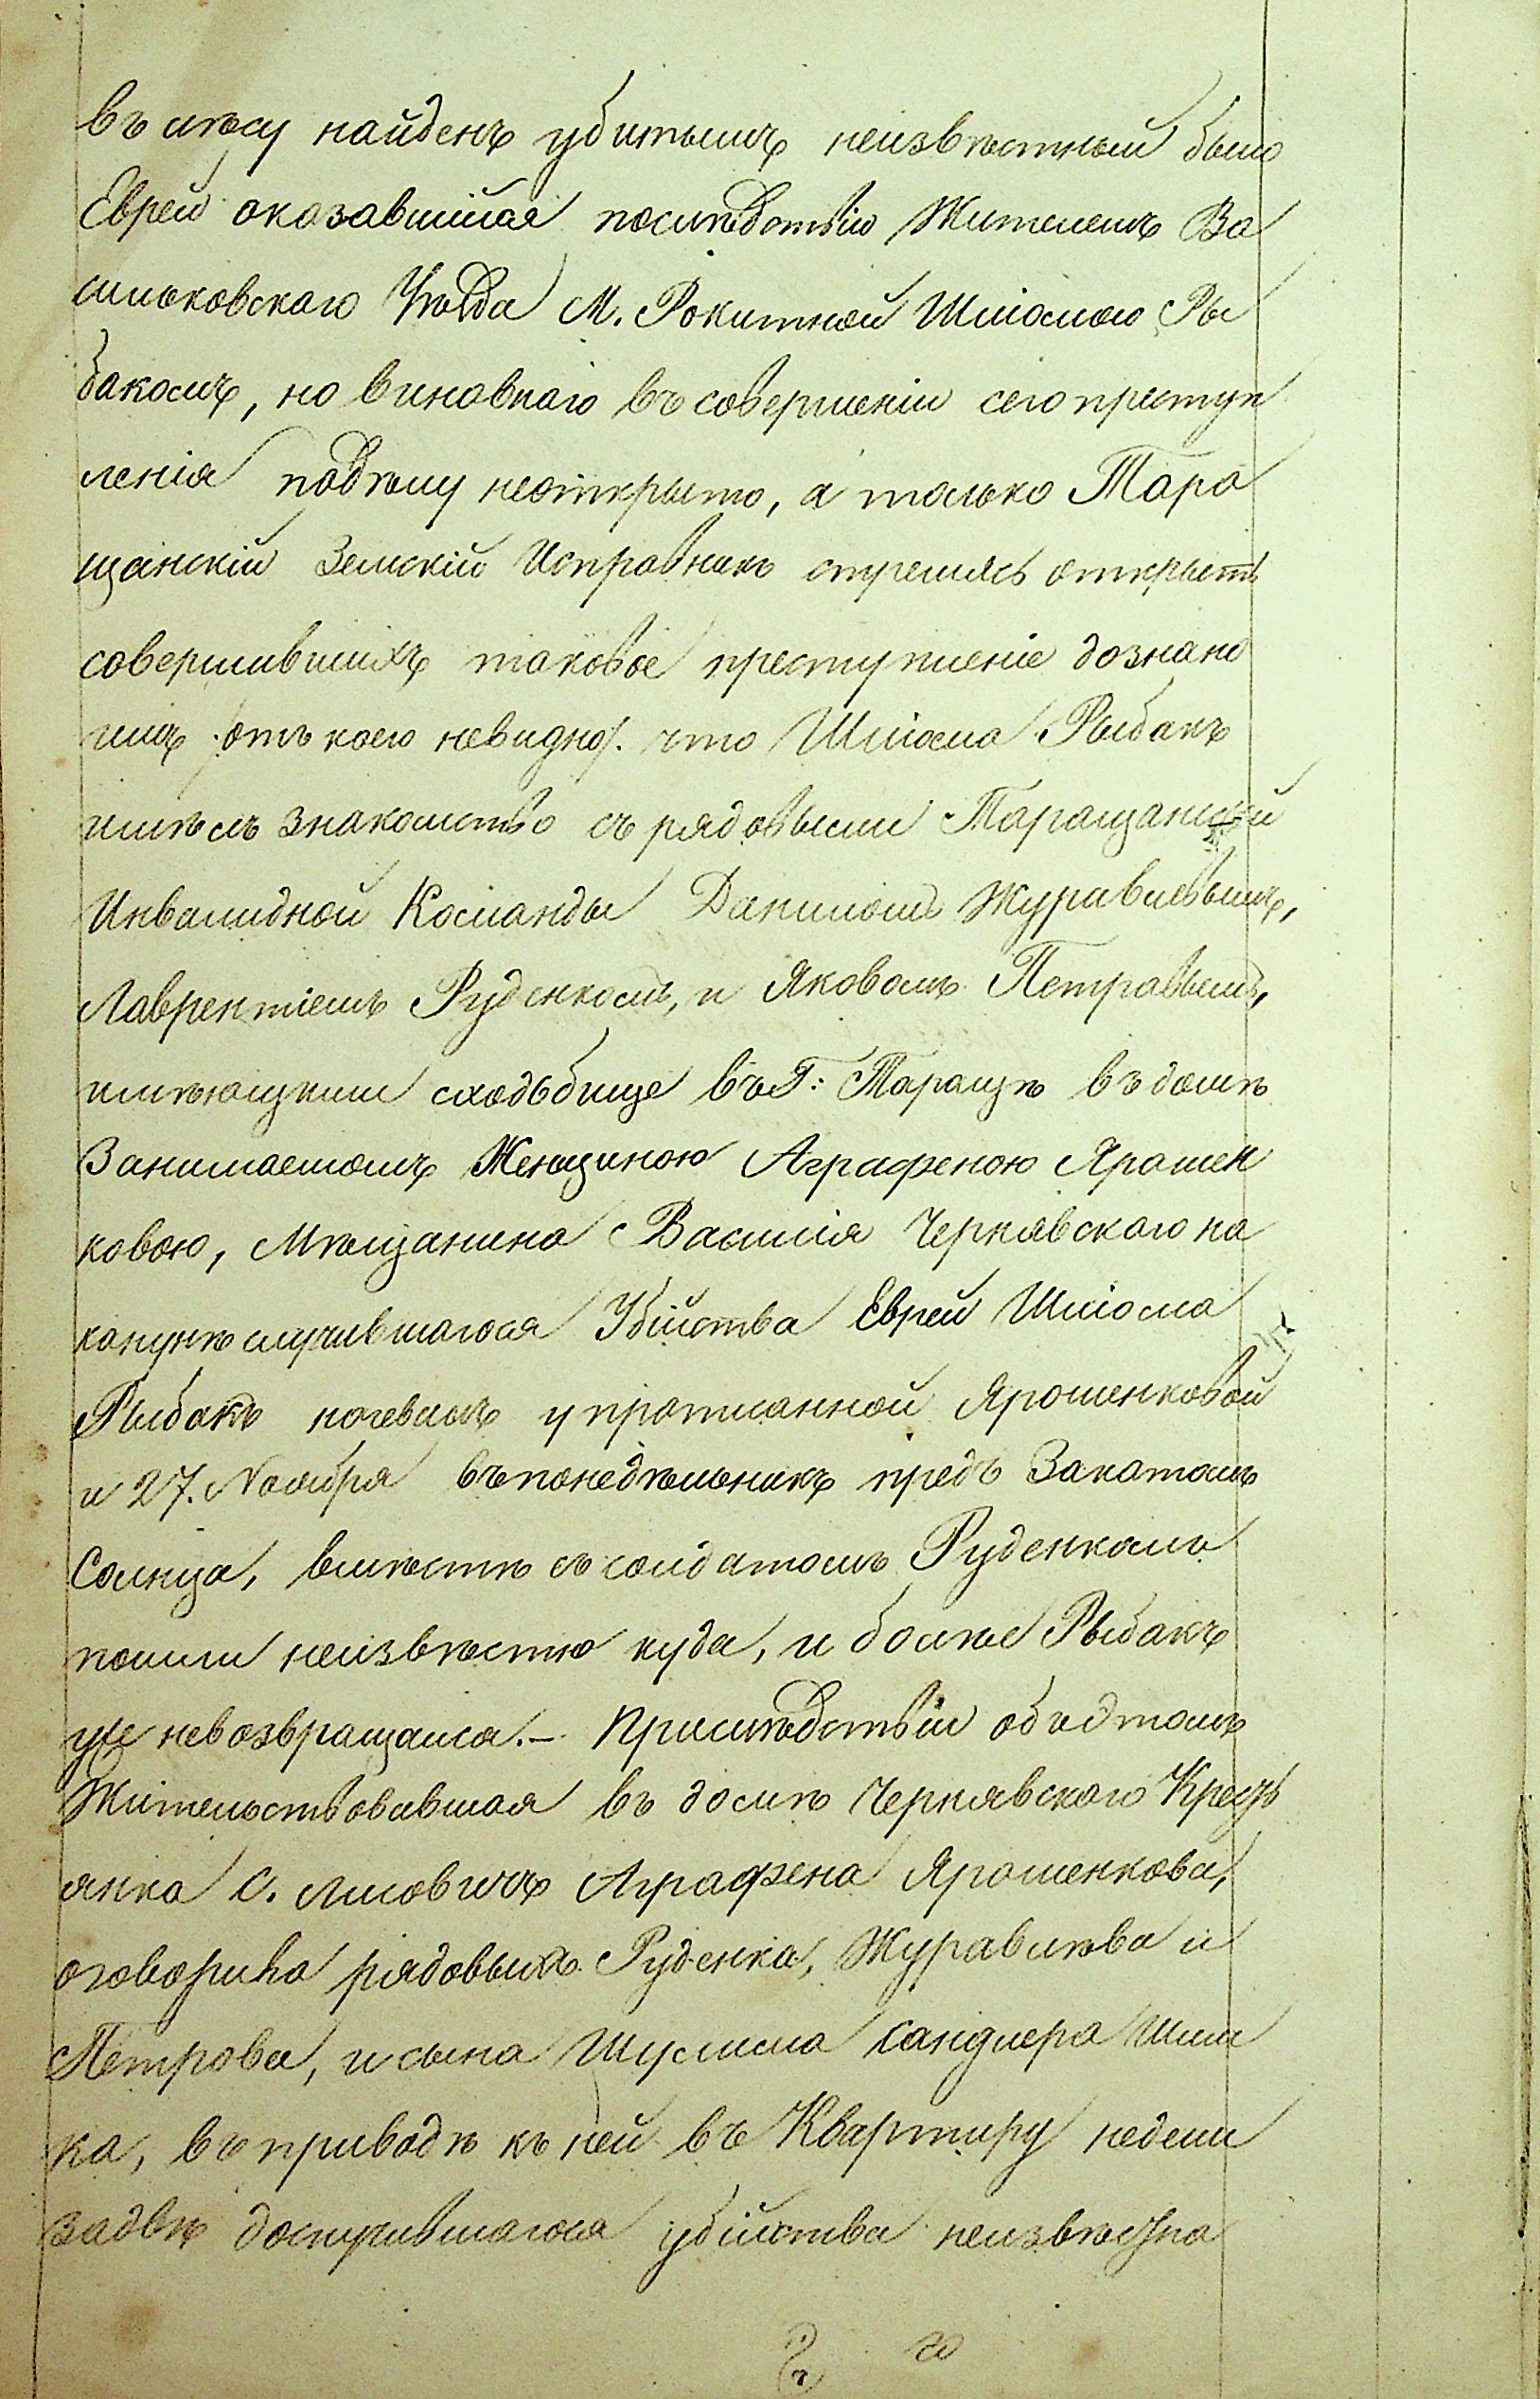 въ лѣсу найденъ убитымъ неизвѣстный было
Еврей оказавшійся послѣдствію Жителемъ Ва
сильковскаго Уѣзда М. Рокитной Шліомою Ры
бакомъ, но виновнаго въ совершеніи сего преступ
ленія подѣлу неоткрыто, а только Тара
щанскій Земскій Исправникъ стремясь открыть
совершившихъ таковое преступленіе дознано
имъ /отъ коего невидно/. что Шліома Рыбакъ
имѣлъ знакомство съ рядовыми Таращанской
Инвалидной Команды Даниломъ Журавлевымъ,
Лаврентіемъ Руденкомъ, и Яковомъ Петровымъ,
имѣющими сходьбище въ Г: Таращѣ въ домѣ
Занимаемомъ Женщиною Аграфеною Ярошен
ковою, Мѣщанина Василія Чернявскаго на
канунѣ случившагося Убійства Еврей Шліома
Рыбакъ ночевалъ упротианной Ярошенковой
и 27. Ноября въ понедѣльникъ предъ Закатомъ
Солнца, вмѣстѣ съ солдатомъ Руденкомъ
пошли неизвѣстно куда, и болѣе Рыбакъ
уже невозвращался.- Прислѣдствіи объ этомъ
Жительствовавшая въ домѣ Чернявскаго Крестъ
янка С. Лисовичъ Аграфена Ярошенкова,
оговорила рядовыхъ Руденка, Журавлѣва и
Петрова, и сына Шулима Сандлера Шми
ка, въ приводѣ къ ней въ Квартиру недели
задвѣ дослучившагося убійства неизвѣстна
го